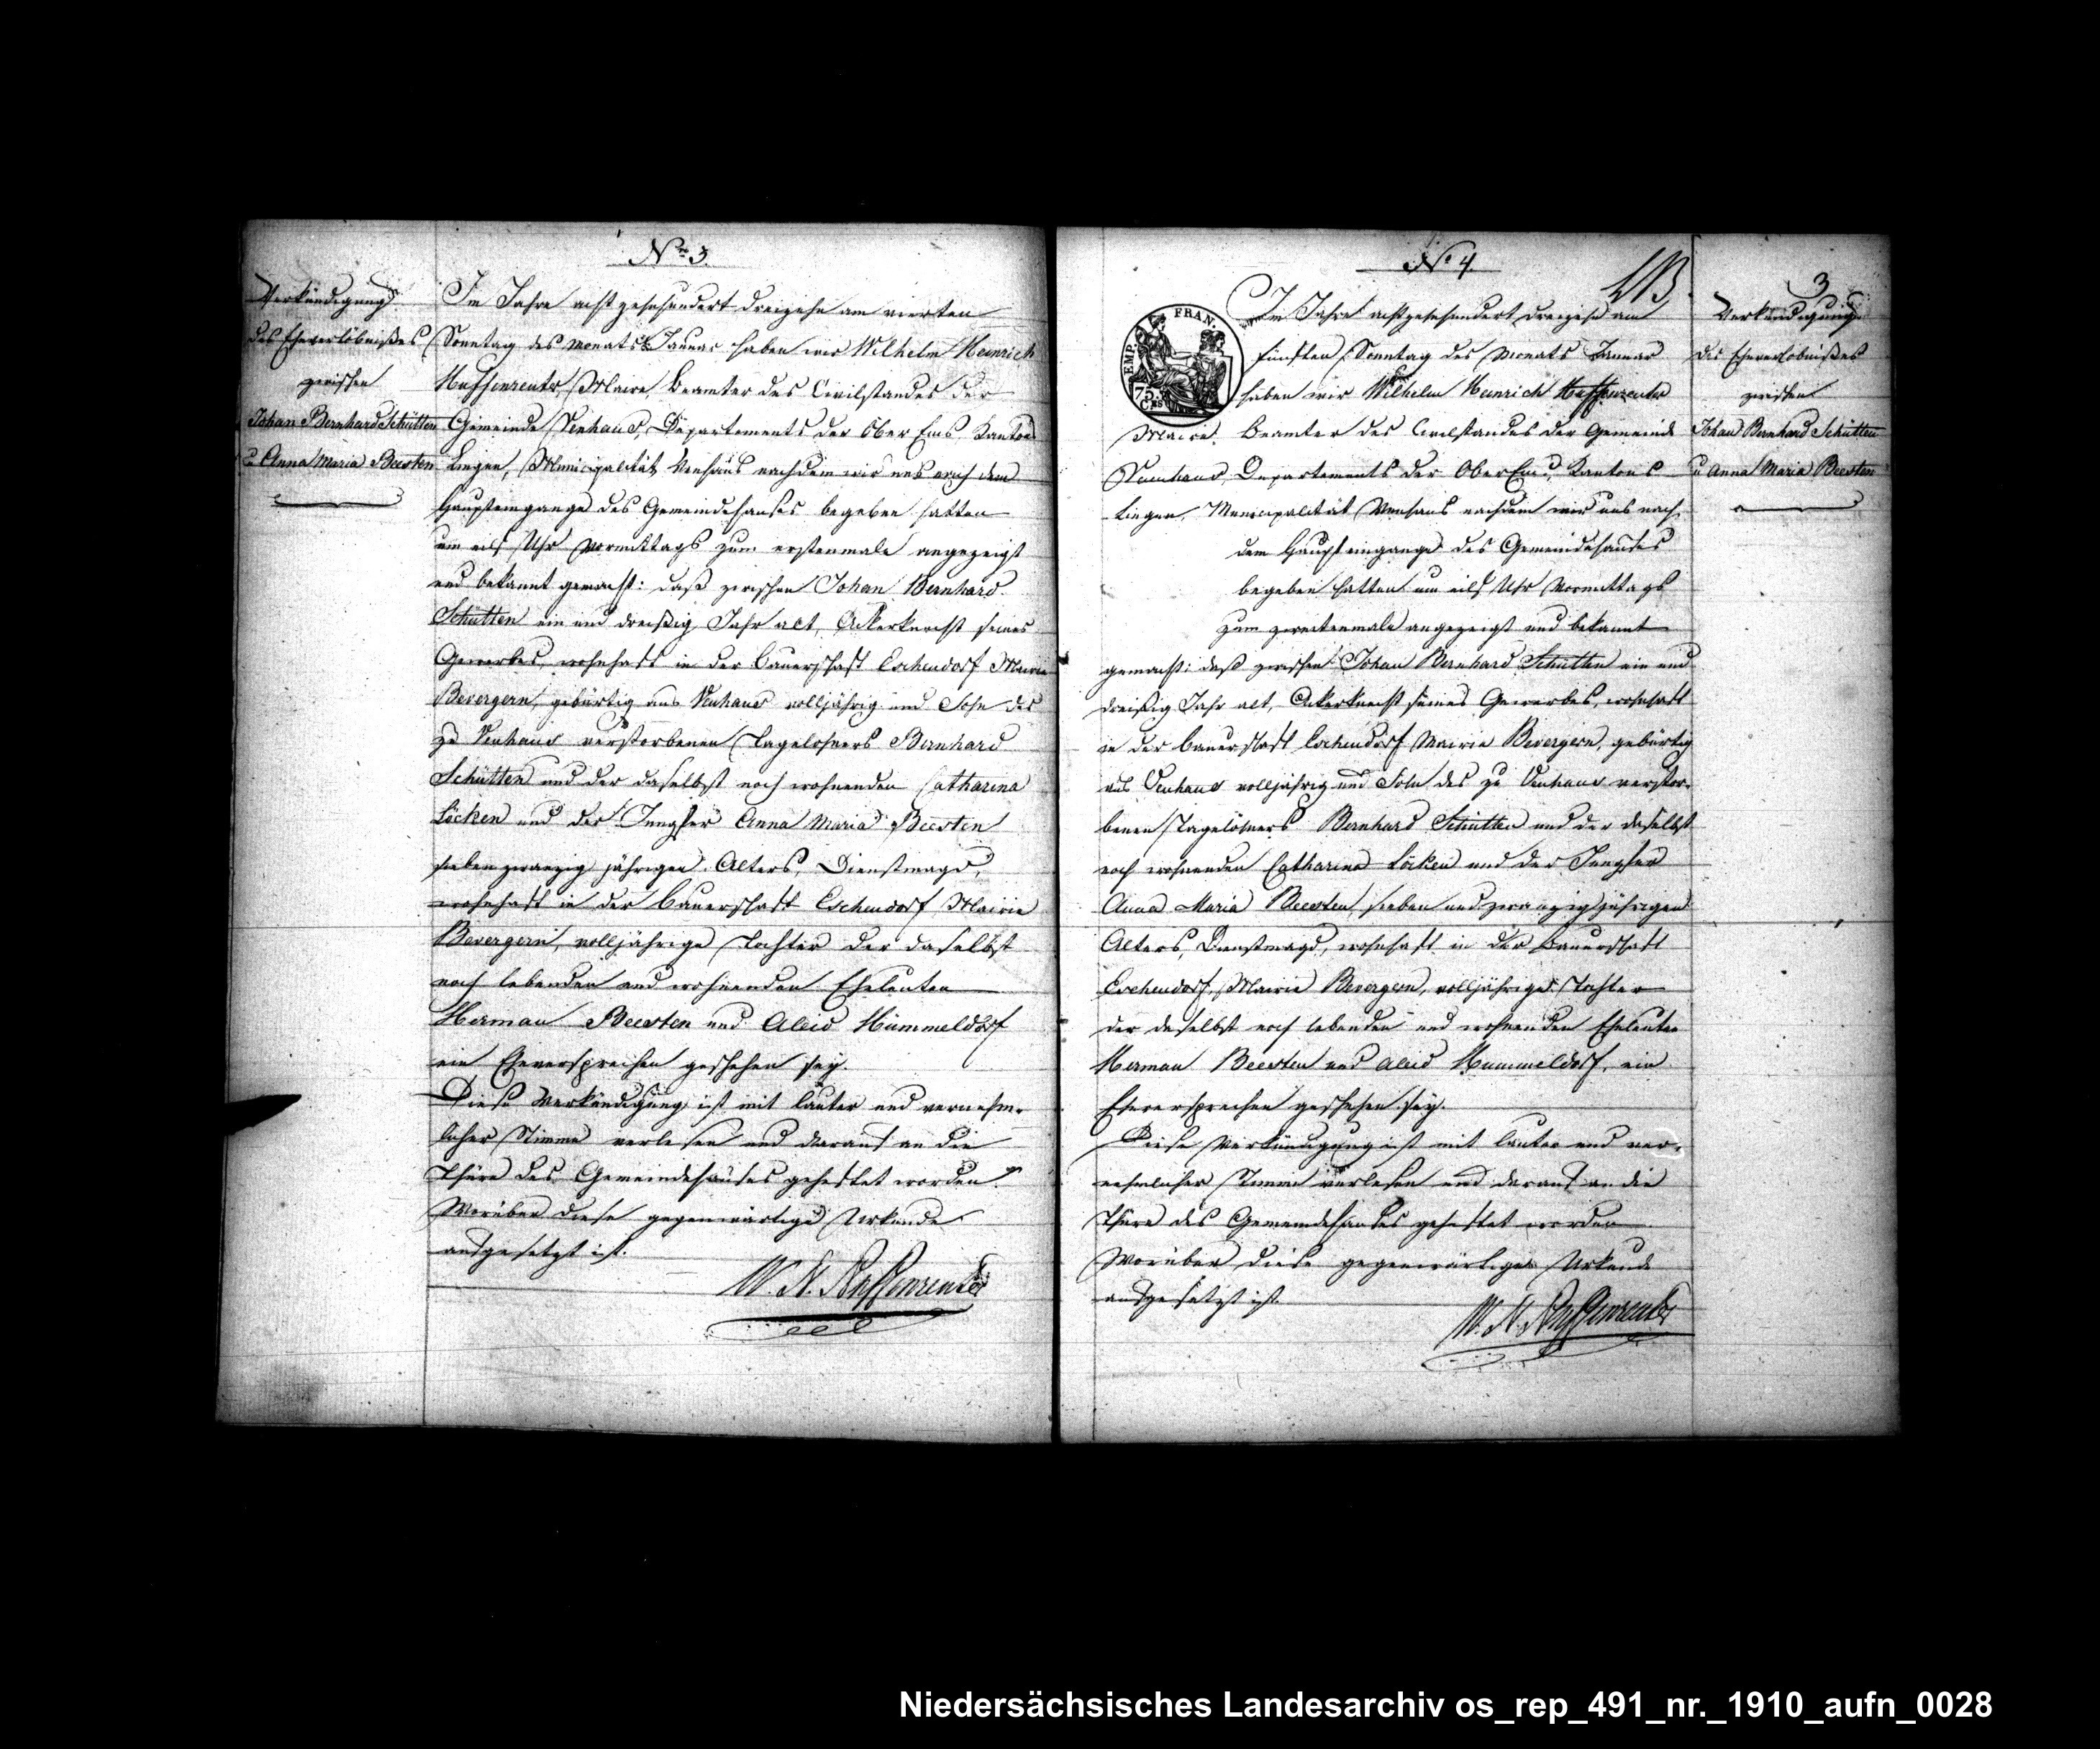 No 3.
Verkündigung
des Eheverlöbnißes
zwischen
Johan Bernhard Schütten
u Anna Maria Beesten
Im Jahre achtzehnhundert dreizehn am vierten
Sonntag des Monats Januar haben wir Wilhelm Heinrich
Maire, Beamter des Civilstandes der
Gemeinde Venhaus, Departements der Ober Ems Kantons
Lingen, Municipalität Venhaus nachdem wir uns nach dem
Haupteingange des Gemeindehauses begeben hatten
um eilf Uhr Vormittags zum erstenmale angezeigt
und bekannt gemacht: daß zwischen Johan Bernhard
Schütten ein und dreißig Jahr alt, Ackerknecht seines
Gewerbes, wohnhaft in der Bauerschaft Eschendorf Mairie
Bevergern, gebürtig aus Venhaus volljährig und Sohn des
zu Venhaus verstorbenen Tagelöhners Bernhard
Schütten und der daselbst noch wohnenden Catharina
Löcken und der Jungfer Anna Maria Beesten
sieben zwanzig jährigen Alters, Dienstmagd,
wohnhaft in der Bauerschaft Eschendorf Mairie
Bevergern, volljährige Tochter der daselbst
noch lebenden und wohnenden Eheleuten
Herman Beesten und Aleid Hümmeldorf
ein Eheversprechen geschehen sey.
Diese Verkündigung ist mit lauter und vernehm-
licher Stimme verlesen und darauf an die
Thüre des Gemeindehauses geheftet worden.
Worüber diese gegenwärtige Urkunde
ausgesetzt ist.
No 4.
3
EMP. FRAN.
75.
Cs
Im Jahre achtzehnhundert dreizehn am
fünften Sonntag des Monats Januar
haben wir Wilhelm Heinrich
Maire, Beamter des Civilstandes der Gemeinde
Venhaus, Departements der Ober Ems, Kantons
Lingen, Municipalität Venhaus nachdem wir uns nach
dem Haupteingange des Gemeindehauses
begeben hatten um eilf Uhr Vormittags
zum zweitenmale angezeigt und bekannt
gemacht: daß zwischen Johan Bernhard Schütten ein und
dreißig Jahr alt, Ackerknecht seines Gewerbes, wohnhaft
in der Bauerschaft Eschendorf Mairie Bevergern, gebürtig
aus Venhaus volljährig und Sohn des zu Venhaus verstor-
benen Tagelöhners Bernhard Schütten und der daselbst
noch wohnenden Catharina Löcken und der Jungfer
Anna Maria Beesten, sieben und zwanzig jährigen
Alters, Dienstmagd, wohnhaft in der Bauerschaft
Eschendorf, Mairie Bevergern, volljährige Tochter
der daselbst noch lebenden und wohnenden Eheleute
Herman Beesten und Aleid Hummeldorf, ein
Eheversprechen geschehen sey.
Diese Verkündigung ist mit lauter und ver-
nehmlicher Stimme verlesen und darauf an die
Thüre des Gemeindehauses geheftet worden
Worüber diese gegenwärtige Urkunde
ausgesetzt ist.
Verkündigung
des Eheverlöbnißes
zwischen
Johan Bernhard Schütten
u Anna Maria Beesten
Niedersächsisches Landesarchiv os_rep_491_nr._1910_aufn_0028